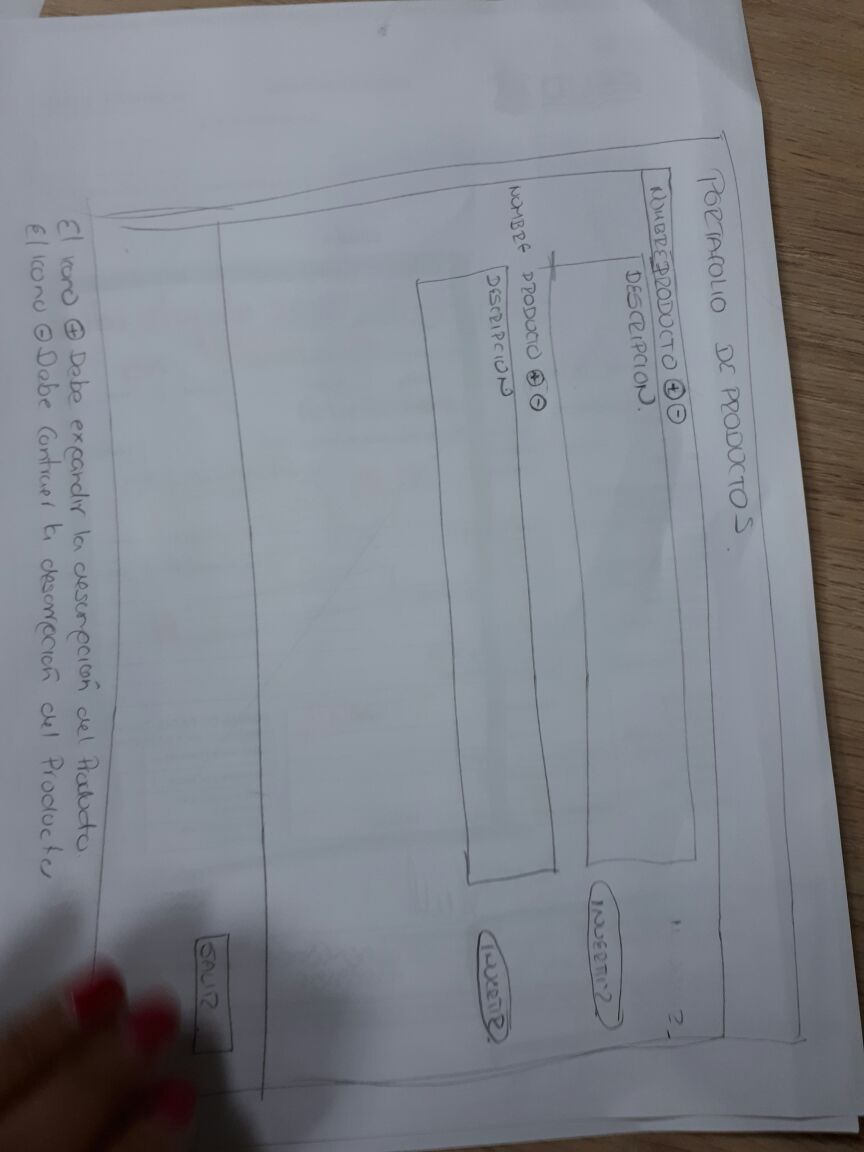 PORTAFOLIO DE PRODUCTOS.
NOMBRE PRODUCTO + -
DESCRIPCION.
INVERTIR
NOMBRE PRODUCTO + -
DESCRIPCION
INVERTIR
SALIR
El icono + Debe expandir la descripción del Producto.
El icono - Debe Contraer la descripción del Producto